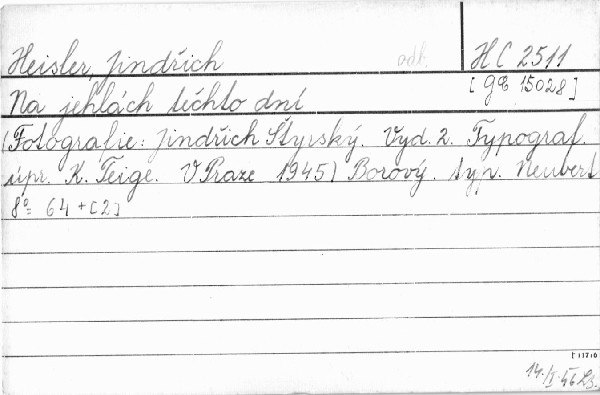 Heisler, Jindřich odb. HC 2511
[ 9C 15028 ]
Na jehlách těchto dní
(Fotografie: Jindřich Štyrský. Vyd. 2. Typograf.
úpr. K. Teige. V Praze 1945) Borový. typ. Neubert
8° 64 + [2]
14./I 46 Ls.